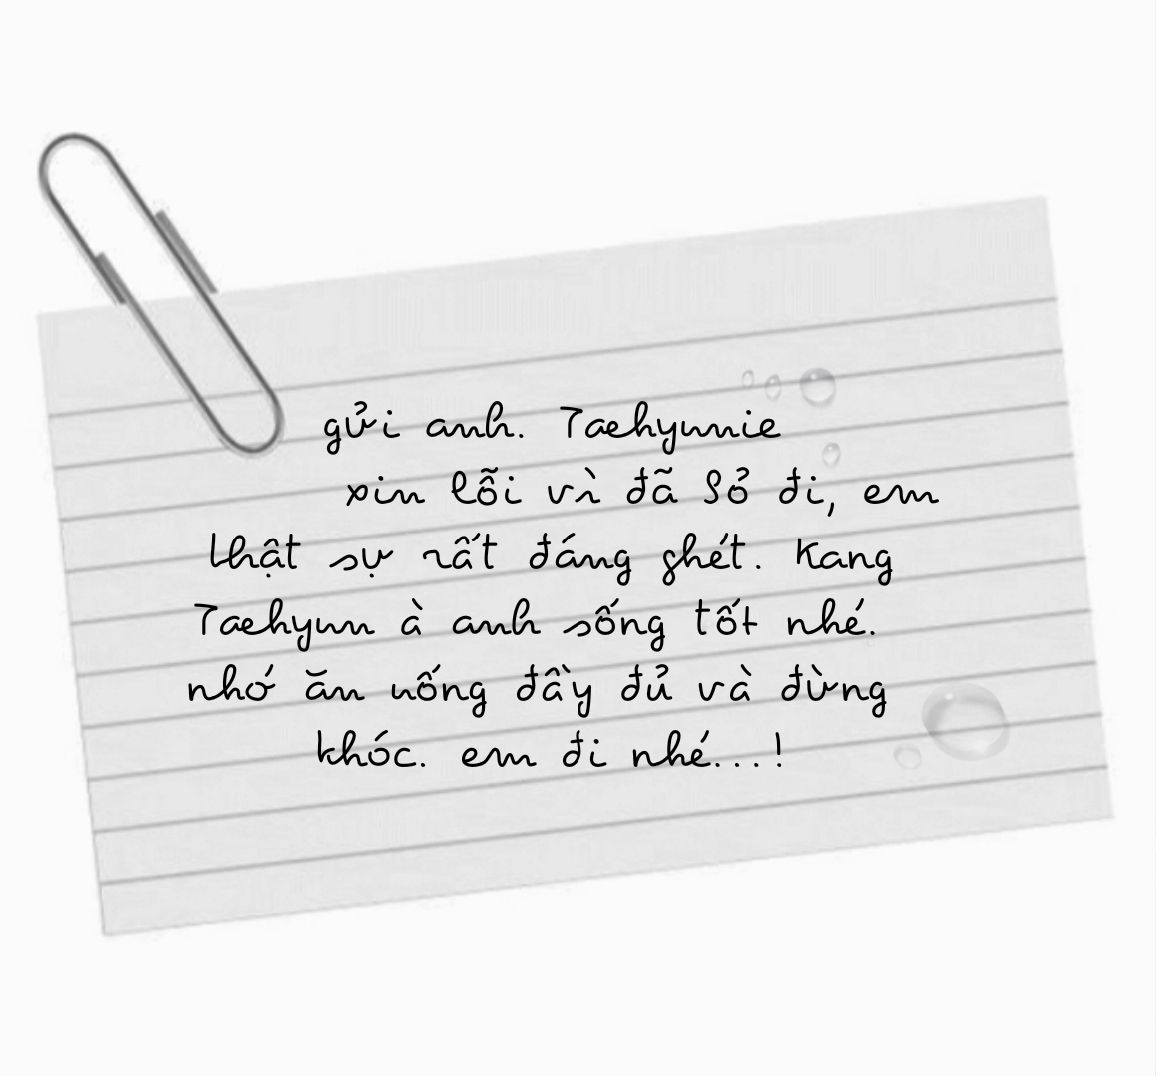 gửi anh. Taehyunie
xin lỗi vì đã bỏ đi, em
thật sự rất đáng ghét. Kang
Taehyun à anh sống tốt nhé.
nhớ ăn uống đầy đủ và đừng
khóc. em đi nhé...!